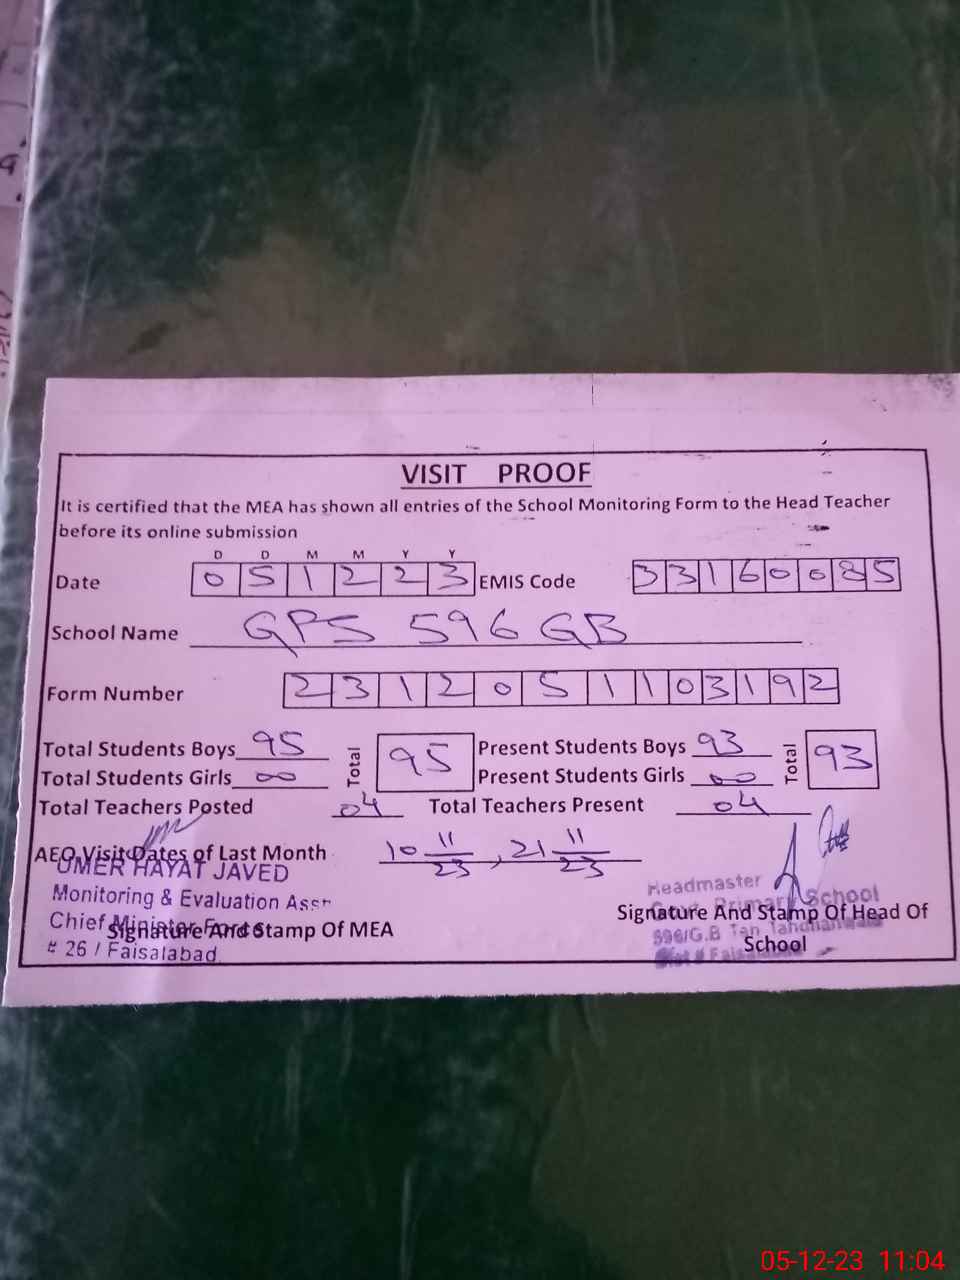 VISIT PROOF
It is certified that the MEA has shown all entries of the School Monitoring Form to the Head Teacher
before its online submission
D D M M Y Y
Date 0 5 1 2 2 3 EMIS Code 3 3 1 6 0 0 8 5
School Name GPS 596 GB
Form Number 2 3 1 2 0 5 1 1 0 3 1 9 2
Total Students Boys 95 Total 95 Present Students Boys 93 Total 93
Total Students Girls 00 Present Students Girls 00
Total Teachers Posted 04 Total Teachers Present 04
AEO Visit Dates of Last Month 10 11/23, 21 11/23
UMER HAYAT JAVED
Monitoring & Evaluation Asstt
Chief Minister Force
# 26 / Faisalabad
Signature And Stamp Of MEA
Headmaster
Govt. Primary School
596/G.B Teh Tandlianwala
Distt # Faisalabad
Signature And Stamp Of Head Of
School
05-12-23 11:04